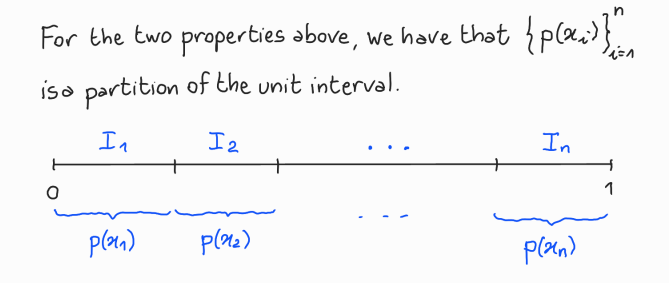 For the two properties above, we have that {p(x_i)}_{i=1}^n
is a partition of the unit interval.
I_1 I_2 ... I_n
0 1
p(x_1) p(x_2) --- p(x_n)